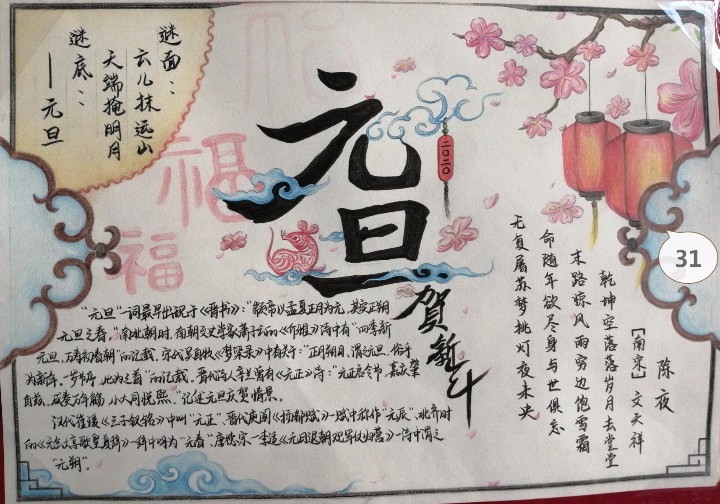 谜面：
云儿抹远山
天端掩明月
谜底：
—元旦
福
福
福
元旦
二〇二〇
贺新年
31
陈夜
[南宋] 文天祥
乾坤空落落岁月去堂堂
末路惊风雨穷边饱雪霜
命随年欲尽身与世俱忘
无复屠苏梦挑灯夜未央
“元旦”一词最早出现于《晋书》：“颛帝以孟夏正月为元，其实正朔
元旦之春。”南北朝时，南朝文史学家萧子云的《介雅》诗中有“四季新
元旦，万寿初春朝”的记载。宋代吴自牧《梦粱录》中有关于：“正月朔日，谓之元旦，俗呼
为新年。一岁节序，此为之首”的记载。晋代诗人辛兰曾有《元正》诗：“元正启令节，嘉庆肇
自兹。咸奏万年觞，小大同悦熙。”记述元旦庆贺情景。
汉代崔瑗《三子钗铭》中叫“元正”，晋代庾阐《扬都赋》一赋中称作“元辰”，北齐时
的《元会大享歌皇夏辞》一辞中呼为“元春”，唐德宗—李适《元日退朝观军仗归营》一诗中谓之
“元朔”。